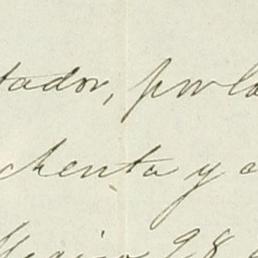 tador, por la
chenta y o
Mexico 28 d